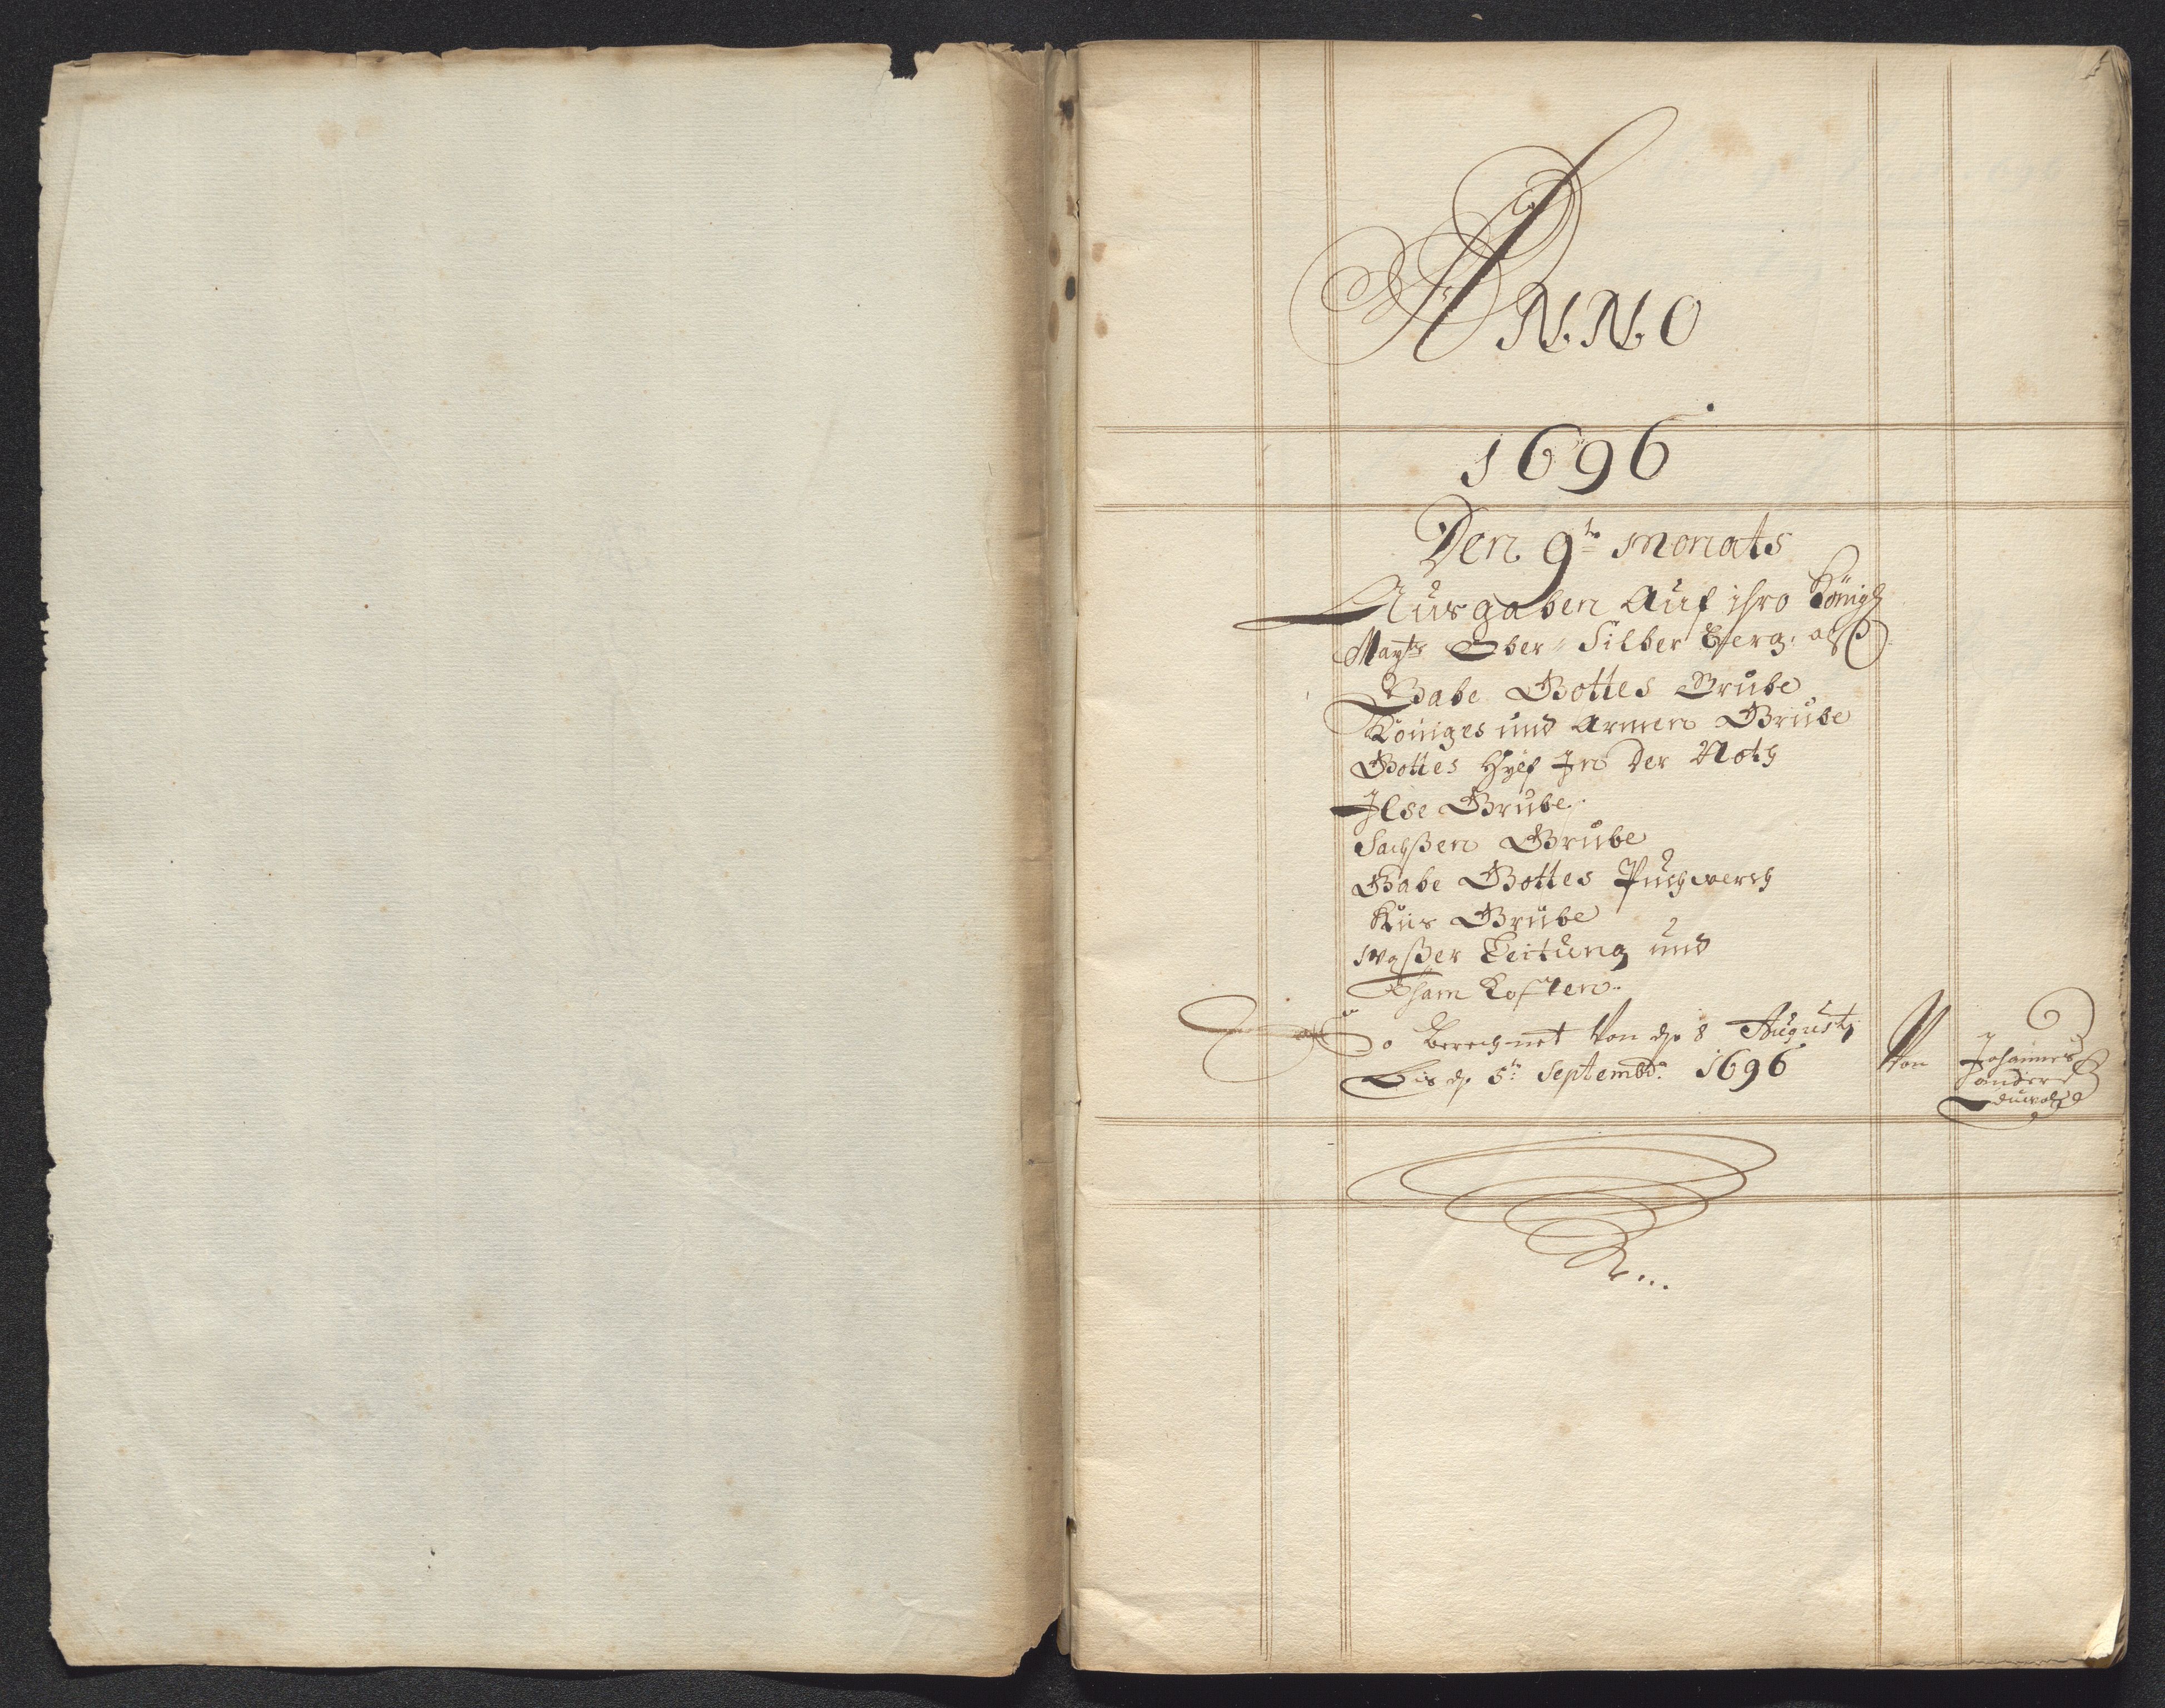 ANNO
1696
Den 9te Monats
Ausgaben Auf ihro Königl
Maytts Ober Silber Berg: als
Gabe Gottes Grube
Königes und Armen Grube
Gottes Hylf In der Noth
Ilse Grube
Sachßen Grube
Gabe Gottes Puchwerch
Kiis Grube
waßer Leitung und
Tham Kosten
So Berechnet Von dn 8 Augusty
Bis dn 5tn Septembr 1696
Von
Johannes